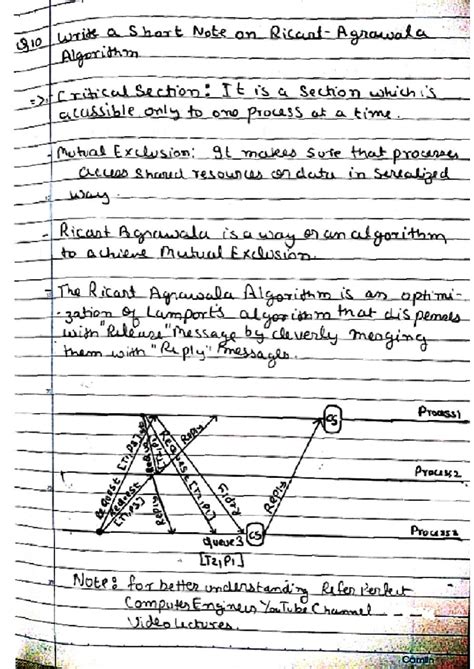 Q10 Write a Short Note on Ricart-Agrawala
Algorithm
=> Critical Section: It is a Section which is
acussible only to one process at a time.
- Mutual Exclusion: It makes sure that processes
access shared resources or data in serealized
way.
- Ricart Agrawala is a way or an algorithm
to achieve Mutual Exclusion.
- The Ricart Agrawala Algorithm is an optimi-
-zation of Lamport's algorithm that dispenses
with "Release" Message by cleverly merging
them with "Reply" messages.
Process1
CS
Request
Reply
Request
Reply
Process2
Request
Reply
Reply
Reply
Process3
Queue3
CS
[T2,P1]
Note: for better understanding Refer Perfect
Computer Engineer YouTube Channel
Video lectures.